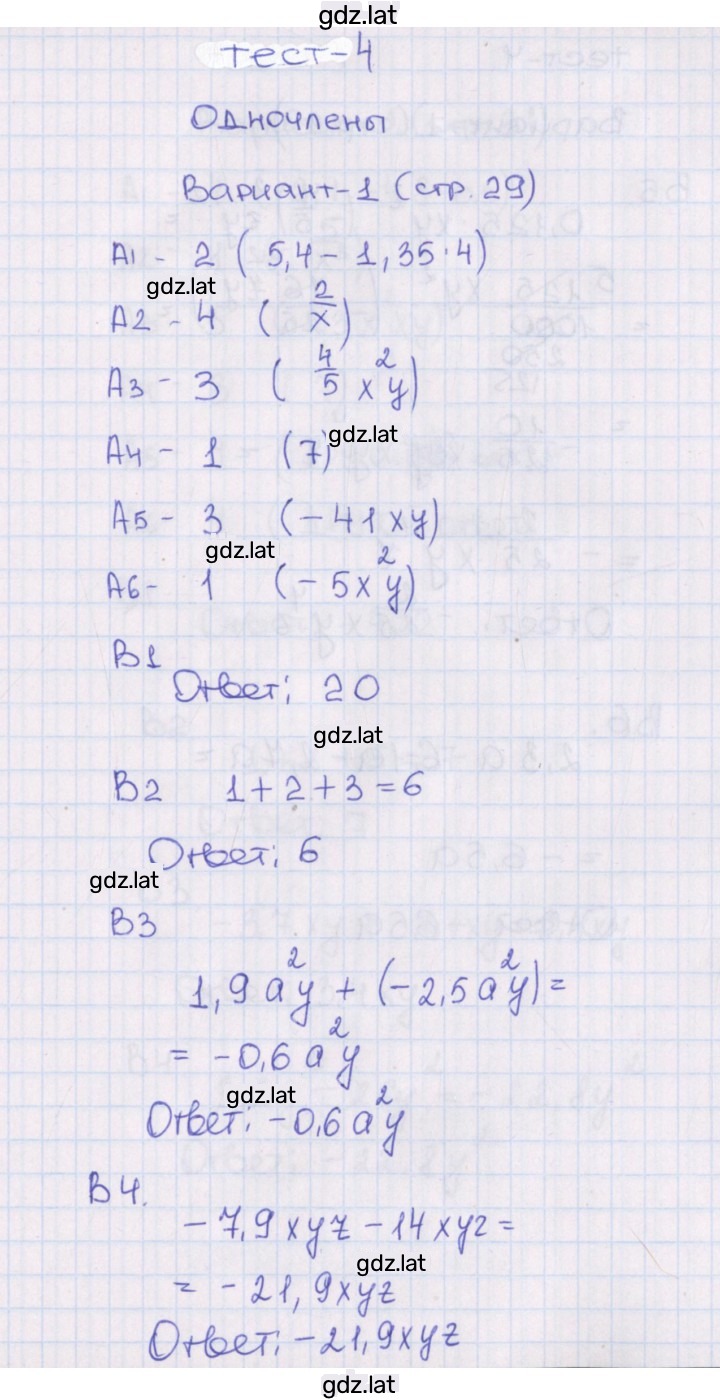 gdz.lat
тест-4
Одночлены
Вариант-1 (стр. 29)
А1 - 2 (5,4 - 1,35·4)
gdz.lat
А2 - 4 (2/x)
А3 - 3 (4/5 x²y)
gdz.lat
А4 - 1 (7)
А5 - 3 (-41xy)
gdz.lat
А6 - 1 (-5x²y)
В1
Ответ: 20
gdz.lat
В2 1+2+3=6
Ответ: 6
gdz.lat
В3
1,9a²y + (-2,5a²y) =
= -0,6a²y
gdz.lat
Ответ: -0,6a²y
В4.
-7,9xyz - 14xyz =
gdz.lat
= -21,9xyz
Ответ: -21,9xyz
gdz.lat